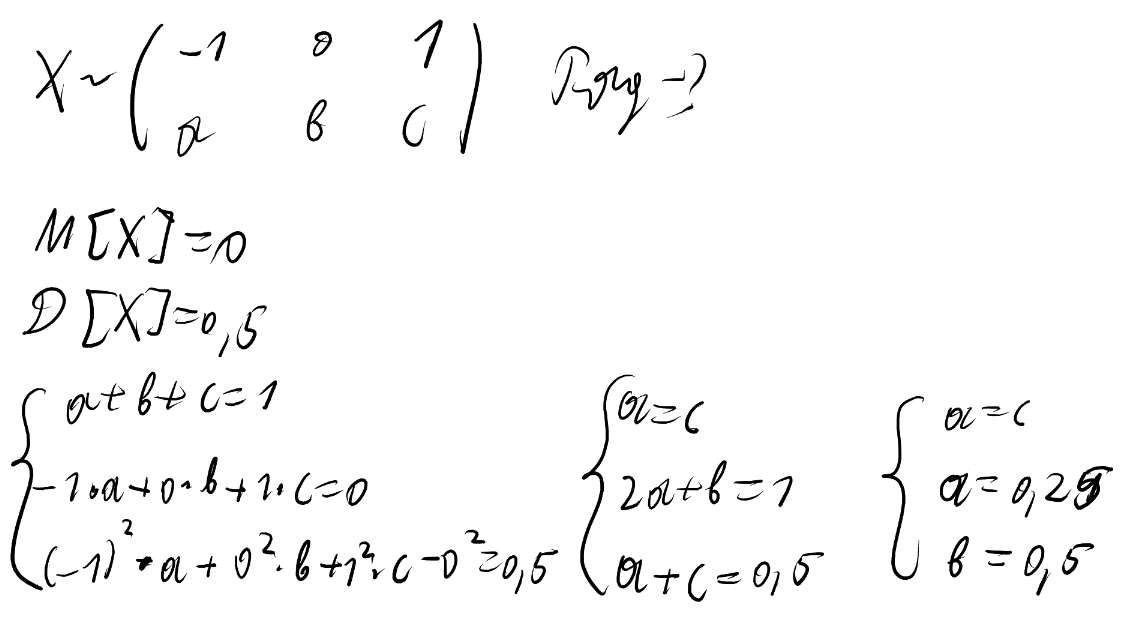 X ~ ( -1 0 1
a b c ) Ряд -?
M[X]=0
D[X]=0,5
{ a+b+c=1
-1·a+0·b+1·c=0
(-1)²·a+0²·b+1²·c-0²=0,5
{ a=c
2a+b=1
a+c=0,5
{ a=c
a=0,25
b=0,5